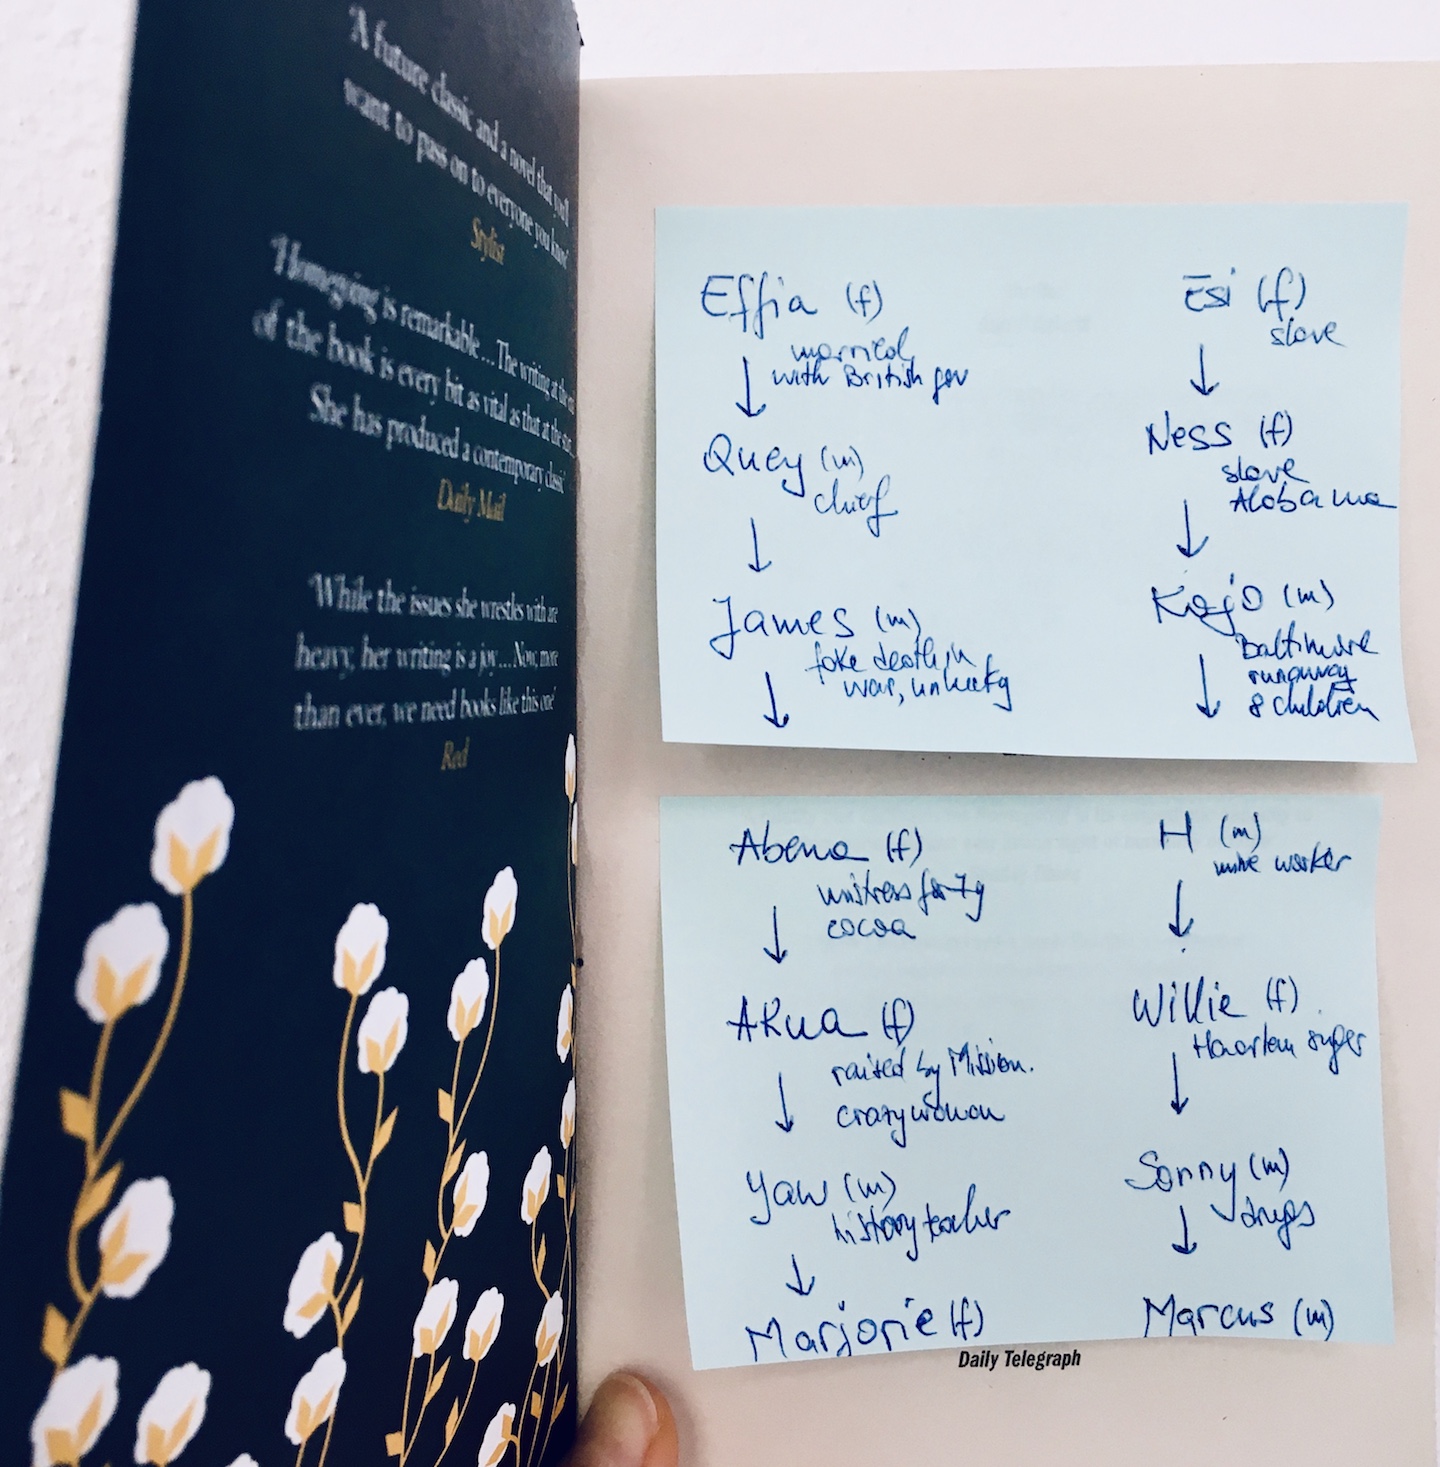 'A future classic and a novel that you'll
want to pass on to everyone you know'
Stylist
'Homegoing is remarkable ... The writing at the end
of the book is every bit as vital as that at the start.
She has produced a contemporary classic'
Daily Mail
'While the issues she wrestles with are
heavy, her writing is a joy ... Now, more
than ever, we need books like this one'
Red
Effia (f)
married
with British gov
↓
Quey (m)
chief
↓
James (m)
fake death in
war, unlucky
↓
Esi (f)
slave
↓
Ness (f)
slave
Alabama
↓
Kojo (m)
Baltimore
runaway
8 children
↓
Abena (f)
mistress for 7y
cocoa
↓
Akua (f)
raised by Mission.
crazy woman
↓
Yaw (m)
history teacher
↓
Marjorie (f)
H (m)
mine worker
↓
Willie (f)
Haarlem
↓
Sonny (m)
drugs
↓
Marcus (m)
Daily Telegraph